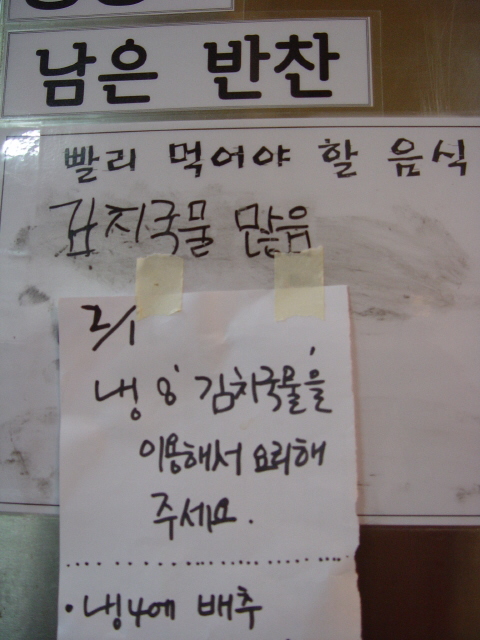 남은 반찬
빨리 먹어야 할 음식
김치국물 많음
2/1
냉8' 김치국물을
이용해서 요리해
주세요.
• 냉4에 배추